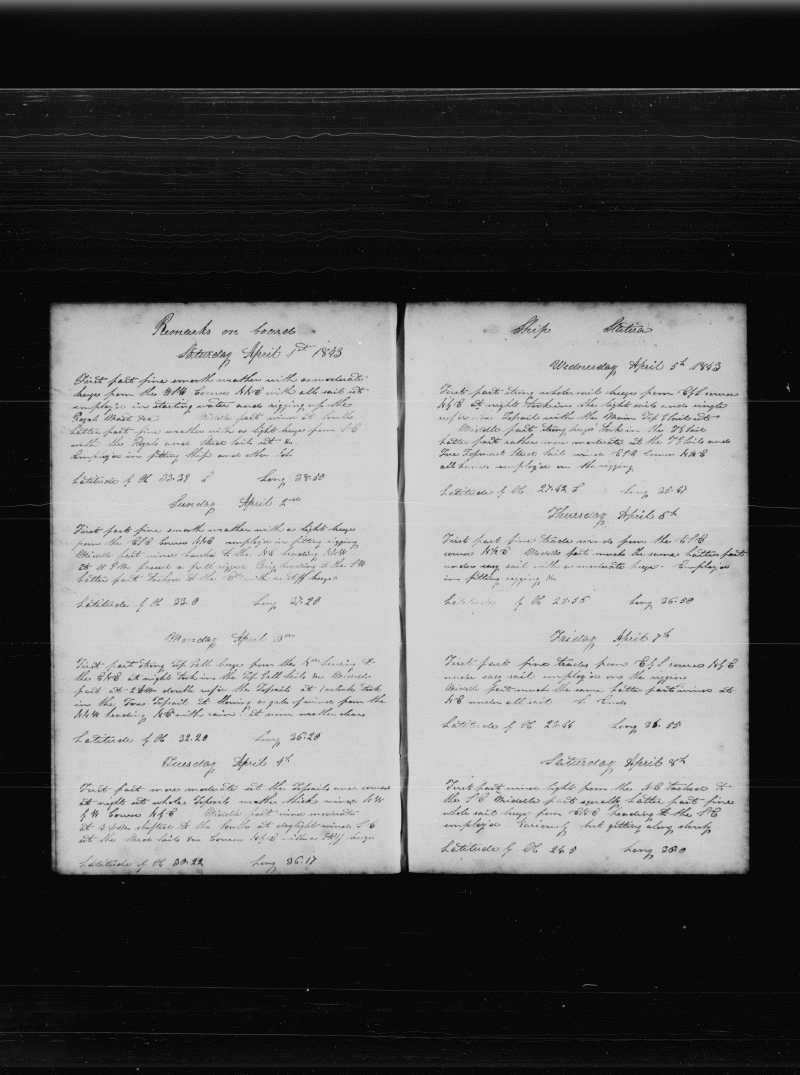 Remarks on board
Saturday April 1st 1843
First part fine smooth weather with a moderate
breeze from the Course NNE with all sail set
employed in starting water and rigging up the
Royal Mast &c Middle part wind at South
Latter part fine weather with a light breeze from SE
with the Royals and Stud Sails set &c
Employed in fitting ship and other Jobs
Latitude by Ob 33.39 S Long 38.50
Sunday April 2nd
First part fine smooth weather with a light breeze
from the ESE Course NNE employed in fitting rigging
Middle part wind hauled to the NE heading NNW
At 11 PM passed a full rigged Brig heading to the SW
Latter part Tacked to the with a stiff breeze
Latitude by Ob 33.0 Long 37.20
Monday April 3rd
First part strong Top Gall breeze from the heading to
the ENE at night took in the Top Gall Sails &c Middle
part at 2 AM double reefed the Topsails at took
in the Fore Topsail it blowing a gale of wind from the
NNW heading NE with rain at noon weather clear
Latitude by Ob 32.20 Long 36.20
Tuesday April 4th
First part more moderate set the Topsails and courses
at night set whole Topsails weather thick wind NW
by W Course N by E Middle part wind moderate
at 2 AM shifted to the South at daylight wind SE
set the Stud Sails &c Course N by E with a stiff breeze
Latitude by Ob 30.22 Long 36.17
Ship Statira
Wednesday April 5th 1843
First part strong whole sail breeze from E by S course
N by E at night took in the light sails and single
reefed the Topsails with the Main Top G Sail set
Middle part strong breeze took in the TG Sail
Latter part rather more moderate set the TG Sails and
Fore Topmast Stud Sail wind ESE Course NNE
all hands employed on the rigging
Latitude by Ob 27.42 S Long 35.47
Thursday April 6th
First part fine trade winds from the ESE
course NNE Middle part much the same Latter part
under easy sail with a moderate breeze. Employed
in fitting rigging &c
Latitude by Ob 25.35 Long 36.50
Friday April 7th
First part fine trades from E by S course N by E
under easy sail employed on the rigging
Middle part much the same Latter part wind at
NE under all sail So Ends
Latitude by Ob 23.44 Long 36.55
Saturday April 8th
First part wind light from the NE tacked to
the SE Middle part squally Latter part fine
whole sail breeze from ENE heading to the SE
employed Variously but getting along slowly
Latitude by Ob 24.0 Long 36.0